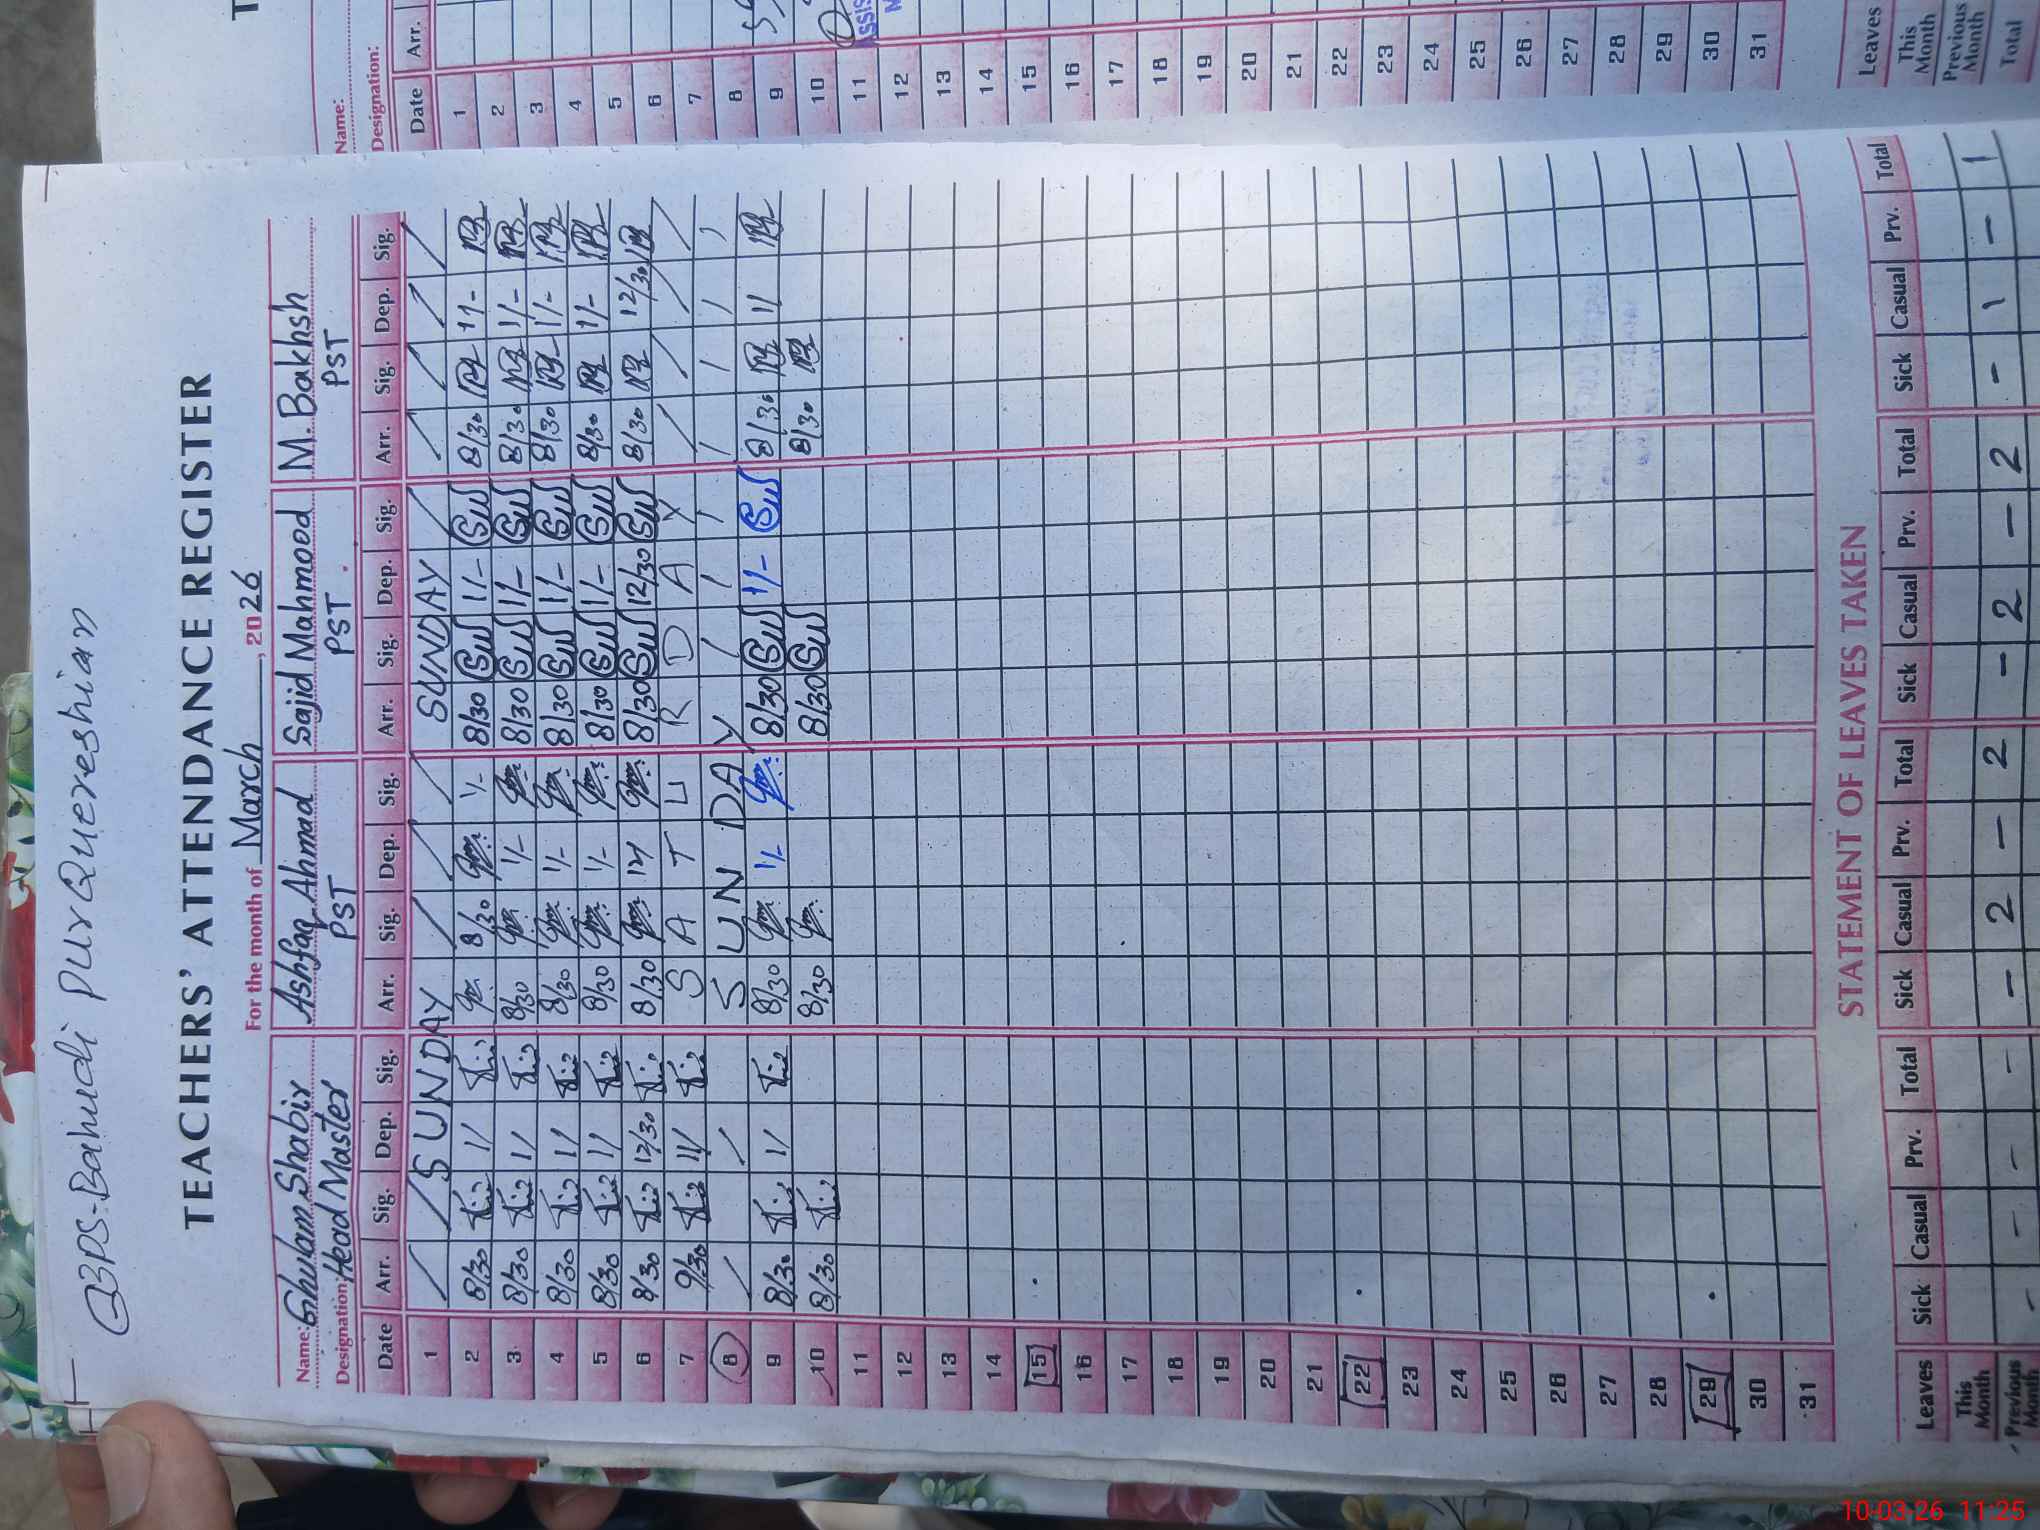 GBPS-Bahudi pur Quereshian
TEACHERS' ATTENDANCE REGISTER
For the month of March, 2026
Name: Ghulam Shabir Ashfaq Ahmad Sajid Mahmood M. Bakhsh
Designation: Head Master PST PST PST
Date Arr. Sig. Dep. Sig. Arr. Sig. Dep. Sig. Arr. Sig. Dep. Sig. Arr. Sig. Dep. Sig.
1 SUNDAY SUNDAY
2 8/30 1/ 8/30 1/- 8/30 1/- 8/30 1/-
3 8/30 1/ 8/30 1/- 8/30 1/- 8/30 1/-
4 8/30 1/ 8/30 1/- 8/30 1/- 8/30 1/-
5 8/30 1/ 8/30 1/- 8/30 1/- 8/30 1/-
6 8/30 12/30 8/30 8/30 12/30 8/30 12/30
7 9/30 1/ S A T U R D A Y
8 SUNDAY
9 8/30 1/ 8/30 1/- 8/30 1/- 8/30 1/
10 8/30 8/30 8/30 8/30
11
12
13
14
15
16
17
18
19
20
21
22
23
24
25
26
27
28
29
30
31
STATEMENT OF LEAVES TAKEN
Leaves Sick Casual Prv. Total Sick Casual Prv. Total Sick Casual Prv. Total Sick Casual Prv. Total
This Month - - - - - 2 - 2 - 2 - 2 - 1 - 1
Previous Month
T
Name:
Designation:
Date Arr.
1
2
3
4
5
6
7
8
9
10
11
12
13
14
15
16
17
18
19
20
21
22
23
24
25
26
27
28
29
30
31
Leaves
This Month
Previous Month
Total
10-03-26 11:25